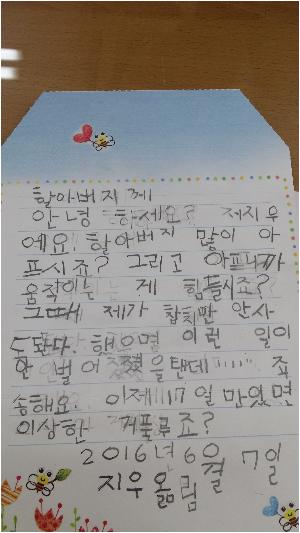 할아버지께
안녕 하세요? 저지우
에요. 할아버지 많이 아
프시죠? 그리고 아프니까
움직이는 게 힘들시죠?
그때 제가 참치깐 안사
도 된다. 했으면 이런 일이
안 벌어 을텐데 죄
송해요. 이제 17일 만있면
이상한 거풀 죠?
2016년 6월 7일
지우 올림